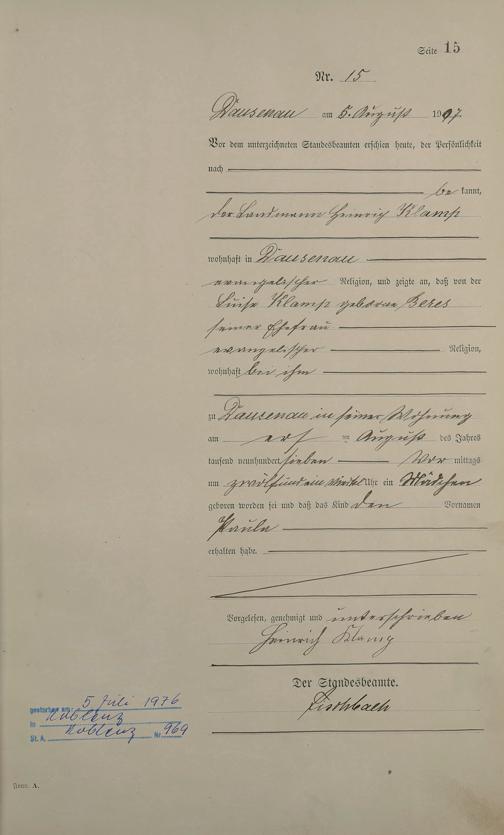 Seite 15
Nr. 15
Dausenau am 5. August 1907.
Vor dem unterzeichneten Standesbeamten erschien heute, der Persönlichkeit
nach
be kannt,
der Landmann Heinrich Klamp
wohnhaft in Dausenau
evangelischer Religion, und zeigte an, daß von der
Luise Klamp geborene Beres
seiner Ehefrau
evangelischer Religion,
wohnhaft bei ihm
zu Dausenau in seiner Wohnung
am August des Jahres
tausend neunhundert sieben Vor mittags
um zwölfundein viertel Uhr ein Mädchen
geboren worden sei und daß das Kind den Vornamen
Paula
erhalten habe.
Vorgelesen, genehmigt und unterschrieben
Heinrich Klamp
Der Standesbeamte.
Fischbach
gestorben am: 5 Juli 1976
in Koblenz
St. A. Koblenz Nr 969
Form. A.